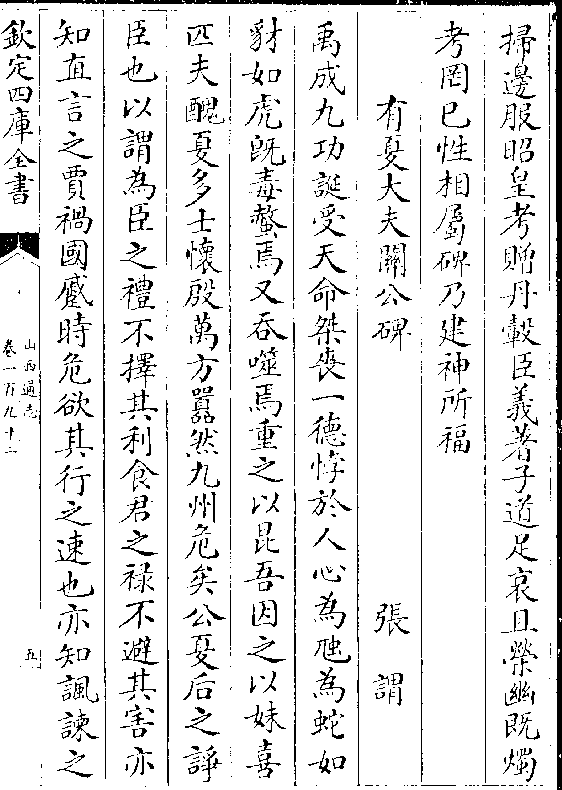 掃邊服昭皇考贈丹轂臣義著子道足哀且榮幽既燭
考罔已性相屬碑乃建神所福
有夏大夫關公碑 張謂
禹成九功誕受天命桀喪一德悖於人心為虺為蛇如
豺如虎既毒螫焉又吞噬焉重之以昆吾因之以妹喜
匹夫醜夏多士懷殷萬方囂然九州危矣公夏后之諍
臣也以謂為臣之禮不擇其利食君之祿不避其害亦
知直言之賈禍國蹙時危欲其行之速也亦知諷諫之
欽定四庫全書
山西通志
卷一百九十二
五